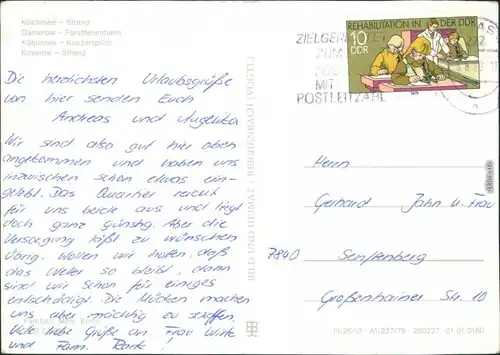 Kölpinsee – Strand
Damerow – Forstferienheim
Kölpinsee – Konzertplatz
Koserow – Strand
Die herzlichsten Urlaubsgrüße
von hier senden Euch
Andreas und Angelika
Wir sind also gut hier oben
angekommen und haben uns
inzwischen schon etwas ein-
gelebt. Das Quartier reicht
für uns beide aus und liegt
doch ganz günstig. Aber die
Versorgung läßt zu wünschen
übrig. Wollen wir hoffen, daß
das Wetter so bleibt, dann
sind wir schon für einiges
entschädigt. Die Mücken machen
uns aber mächtig zu schaffen.
Viele liebe Grüße an Frau
und Fam.
BILD UND HEIMAT · REICHENBACH (VOGTL)
REHABILITATION IN DER DDR
10
DDR
ZIELGERICHTET
ZUM
MIT
POSTLEITZAHL
Herrn
Gerhard Jahn u. Frau
7840 Senftenberg
Großenhainer Str. 10
III/26/13 A1/227/79 280227 01 01 0180